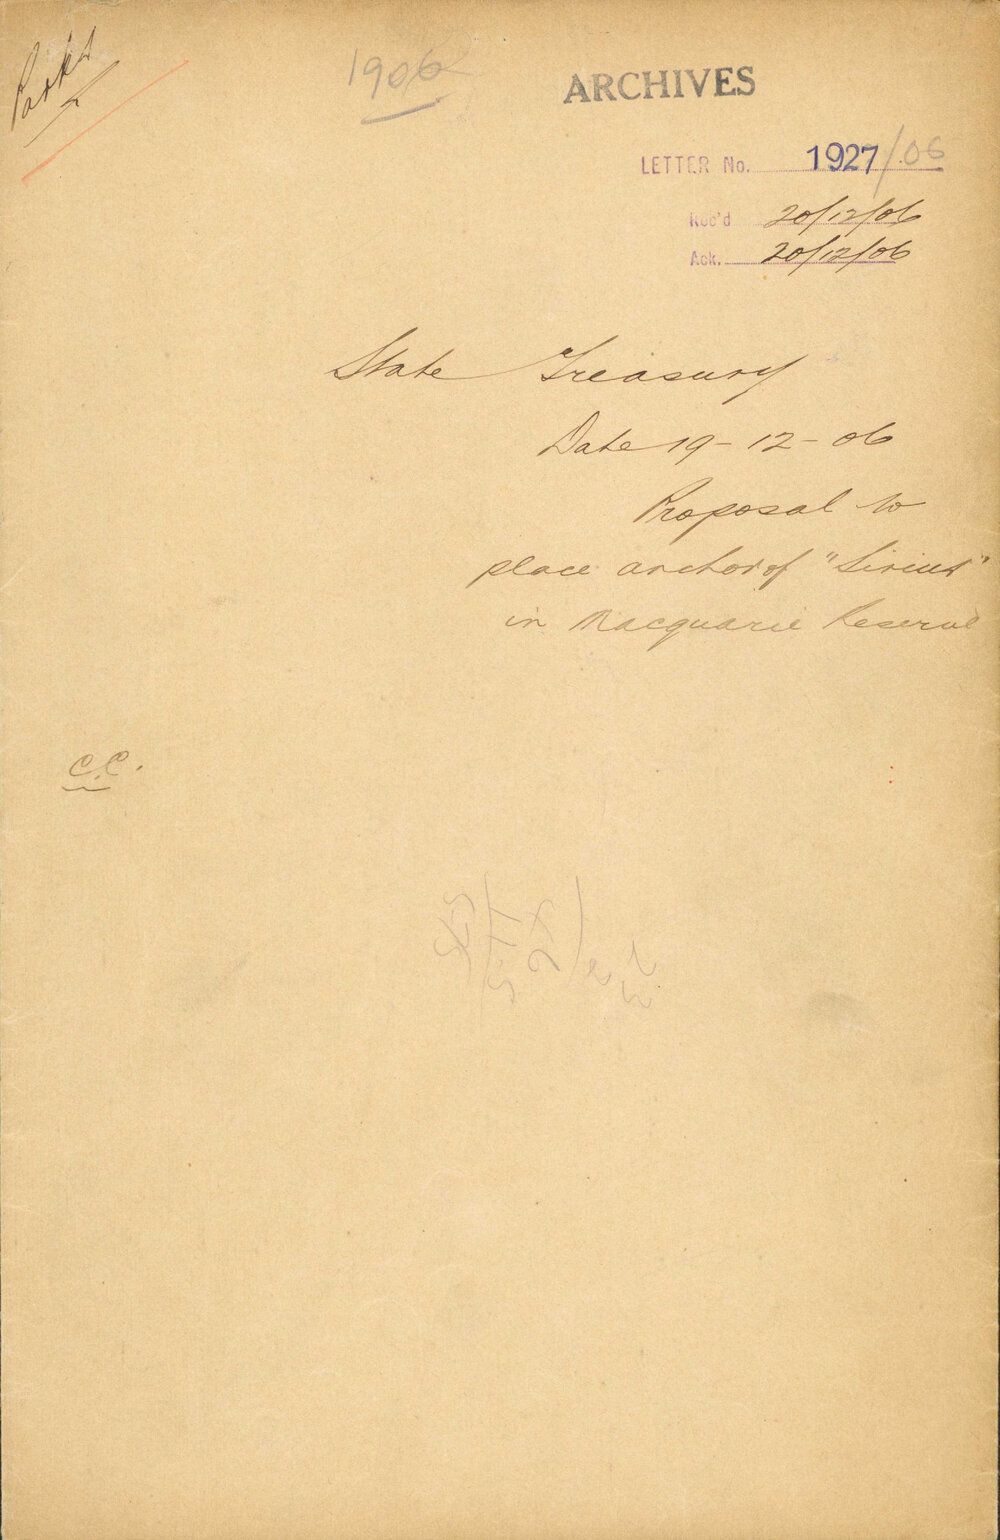 Parks
1906
ARCHIVES
LETTER No. 1927/06
Rec'd 20/12/06
Ack. 20/12/06
State Treasury
Date 19-12-06
Proposal to
place anchor of "Sirius"
in Macquarie Reserve
C.C.